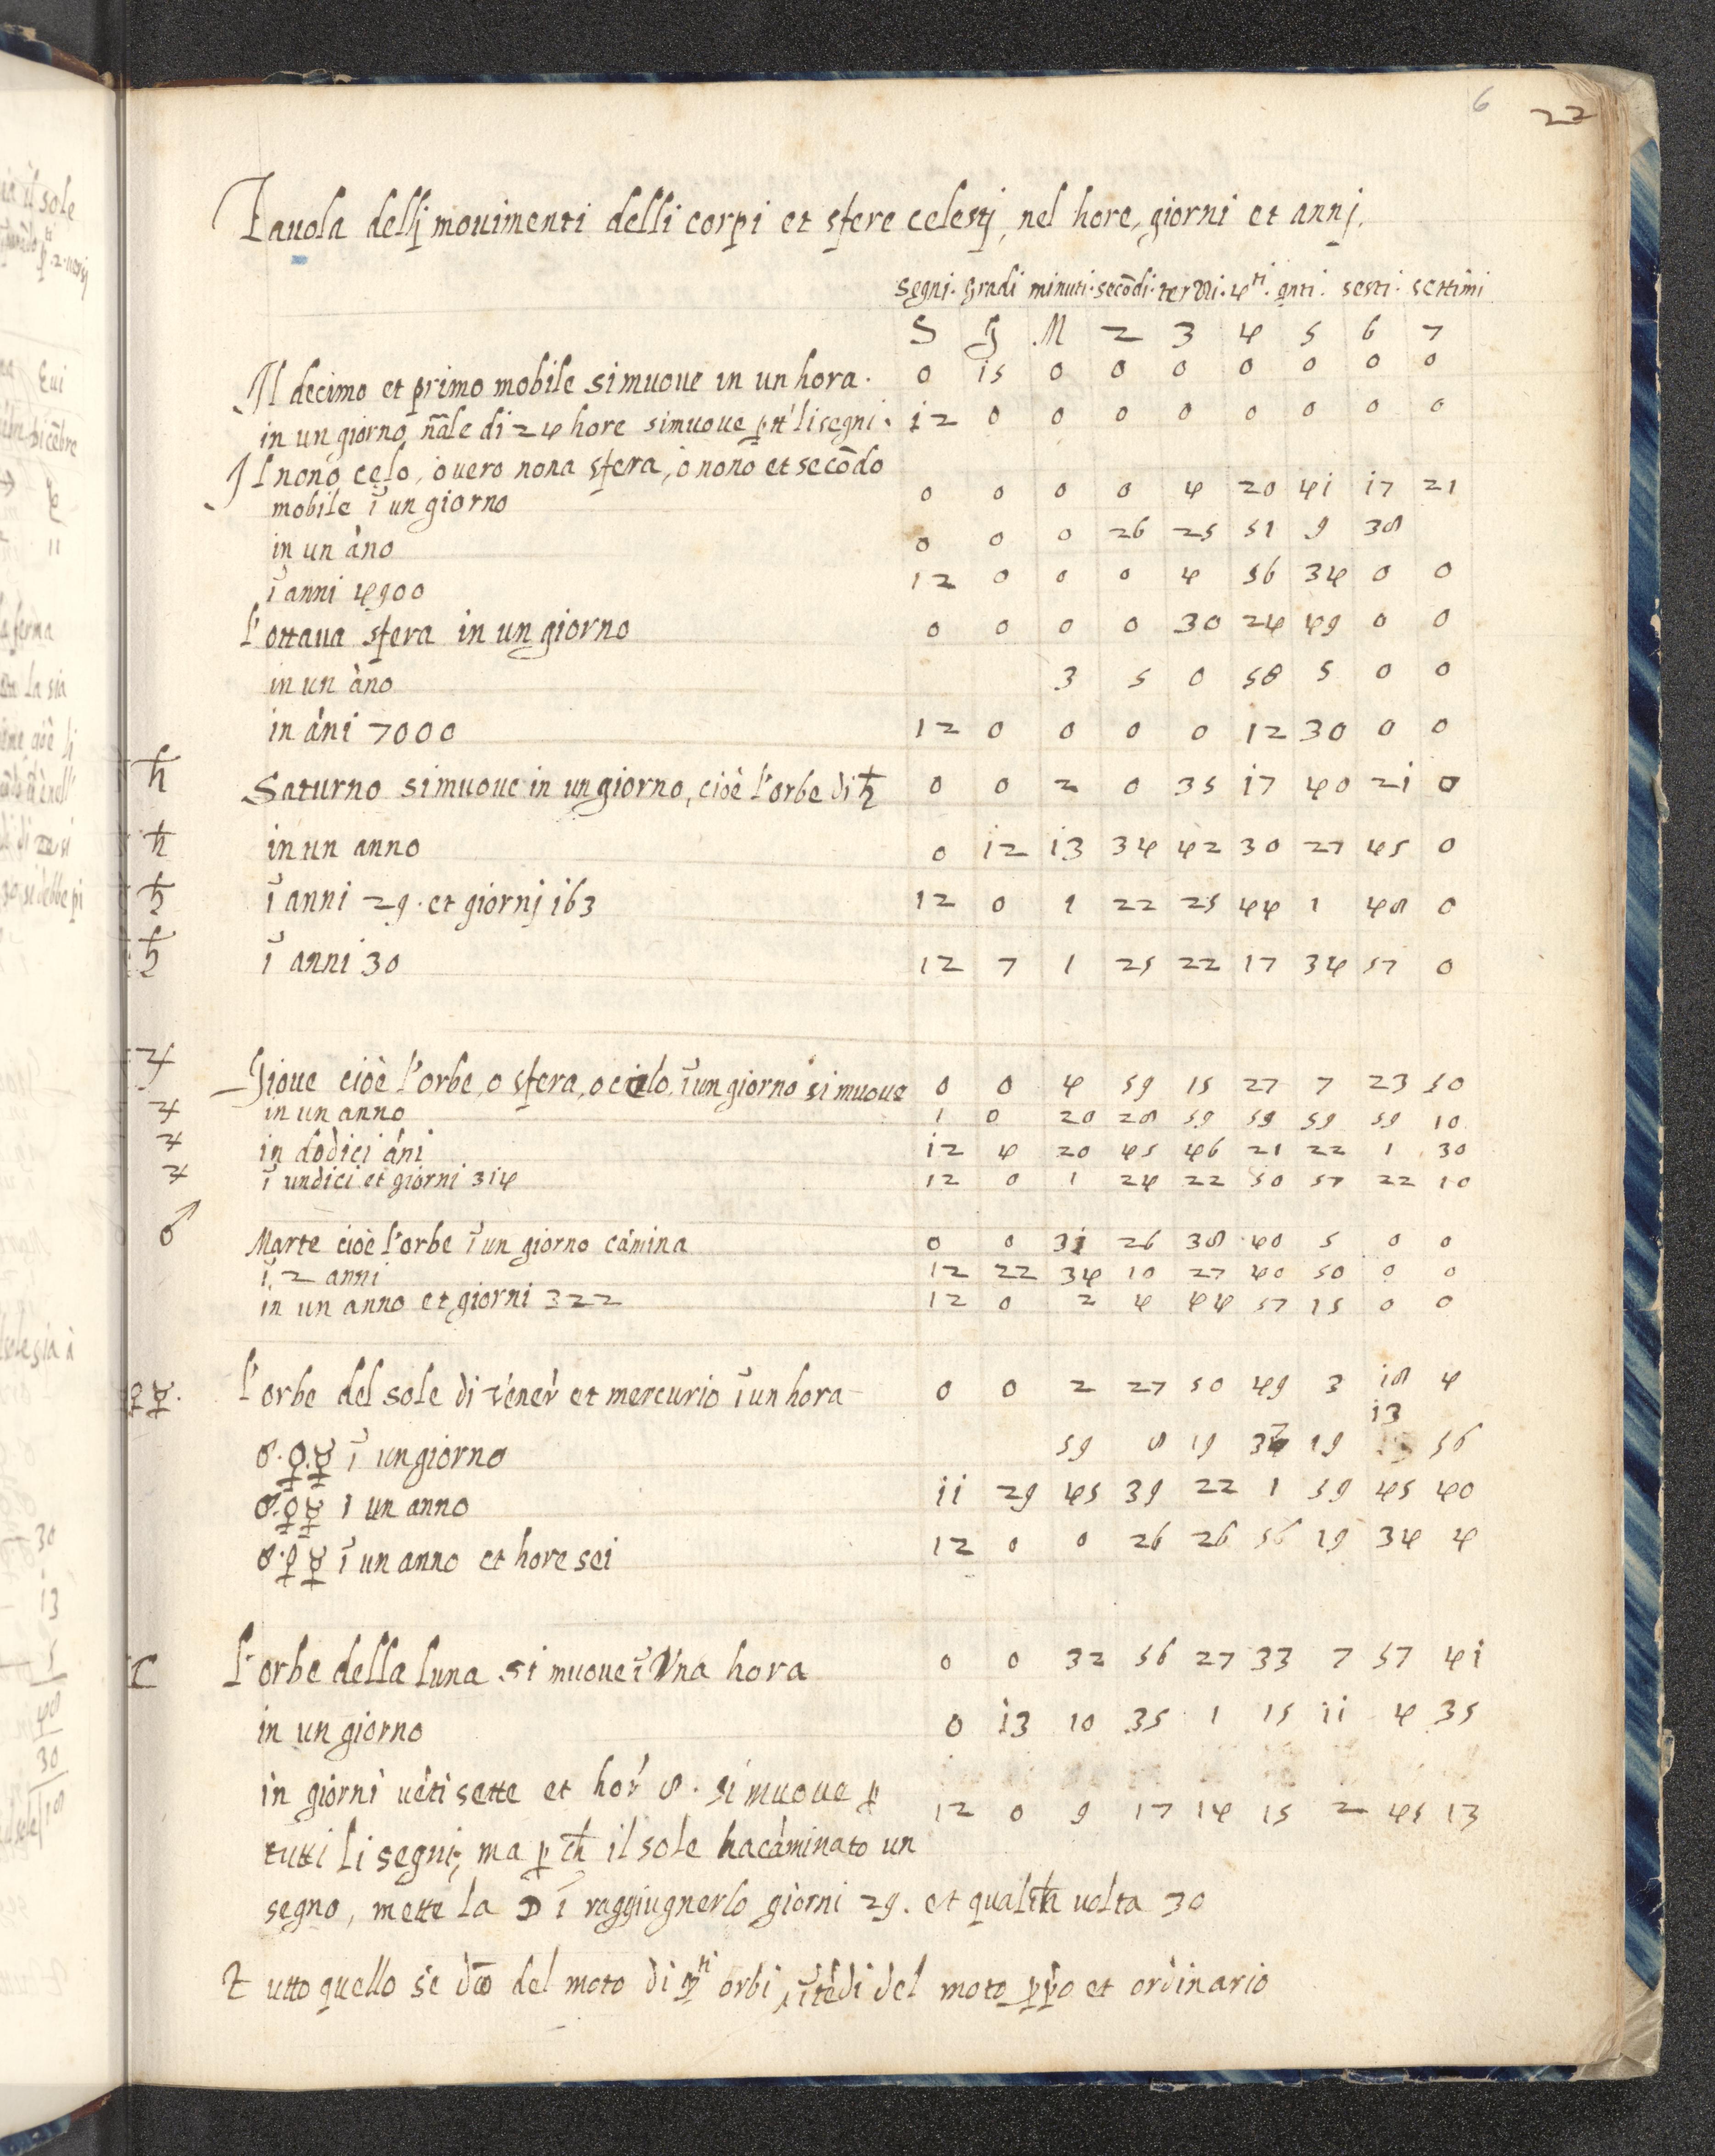 6 22
Tauola dellj mouimenti delli corpi et sfere celestj, nel hore, giorni et annj.
segni. gradi minuti. secōdi. terzi. 4ti. qnti. sesti. settimi
S G M 2 3 4 5 6 7
Il decimo et primo mobile si muoue in un hora. 0 i5 0 0 0 0 0 0 0
in un giorno nāle di 24 hore si muoue p tt' li segni. i2 0 0 0 0 0 0 0 0
Il nono celo, ò uero nona sfera, ò nono et secōdo
mobile ī un giorno 0 0 0 0 4 20 4i i7 21
in un àno 0 0 0 26 25 51 9 38
ī anni 4900 12 0 0 0 4 56 34 0 0
l'ottaua sfera in un giorno 0 0 0 0 30 24 49 0 0
in un àno 3 5 0 58 5 0 0
in àni 7000 12 0 0 0 0 12 30 0 0
♄ Saturno si muoue in un giorno, cioè l'orbe di ♄ 0 0 2 0 35 i7 40 2i 0
♄ in un anno 0 12 i3 34 42 30 27 45 0
♄ ī anni 29. et giornj i63 12 0 1 22 25 44 1 48 0
♄ ī anni 30 12 7 1 25 22 17 34 57 0
♃ Gioue cioè l'orbe, o sfera, o cielo. ī un giorno si muoue 0 0 4 59 15 27 7 23 50
♃ in un anno 1 0 20 28 59 59 59 59 10
♃ in dodici áni i2 4 20 45 46 21 22 1 30
♃ ī undici et giorni 3i4 12 0 1 24 22 50 57 22 10
♂ Marte cioè l'orbe ī un giorno cámina 0 0 3i 26 38 40 5 0 0
ī 2 anni 12 22 34 10 27 40 50 0 0
in un anno et giorni 322 12 0 2 4 44 57 15 0 0
♀☿. l'orbe del sole di vener et mercurio ī un hora 0 0 2 27 50 49 3 i8 4
i3
♂.♀.☿ ī un giorno 59 8 19 19 56
♂.♀☿ ī un anno ii 29 45 39 22 1 59 45 40
♂.♀☿ ī un anno et hore sei 12 0 0 26 26 56 19 34 4
☾ L'orbe della luna si muoue ī Vna hora 0 0 32 56 27 33 7 57 4i
in un giorno 0 i3 10 35 1 15 ii 4 35
in giorni uēti sette et hor 8. si muoue p 12 0 9 17 14 15 2 45 13
tutti li segni; ma p ch il sole ha cáminato un
segno, mette la ☽ ī raggiugnerlo giorni 29. et qualch volta 30
Tutto quello se dco del moto di qti orbi, ītēdi del moto pp̄o et ordinario